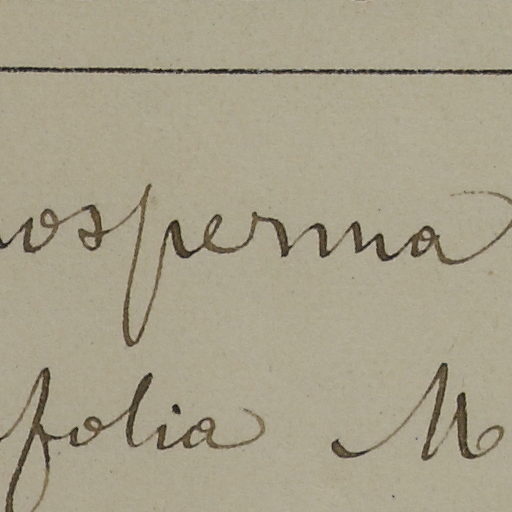 osperma
folia M